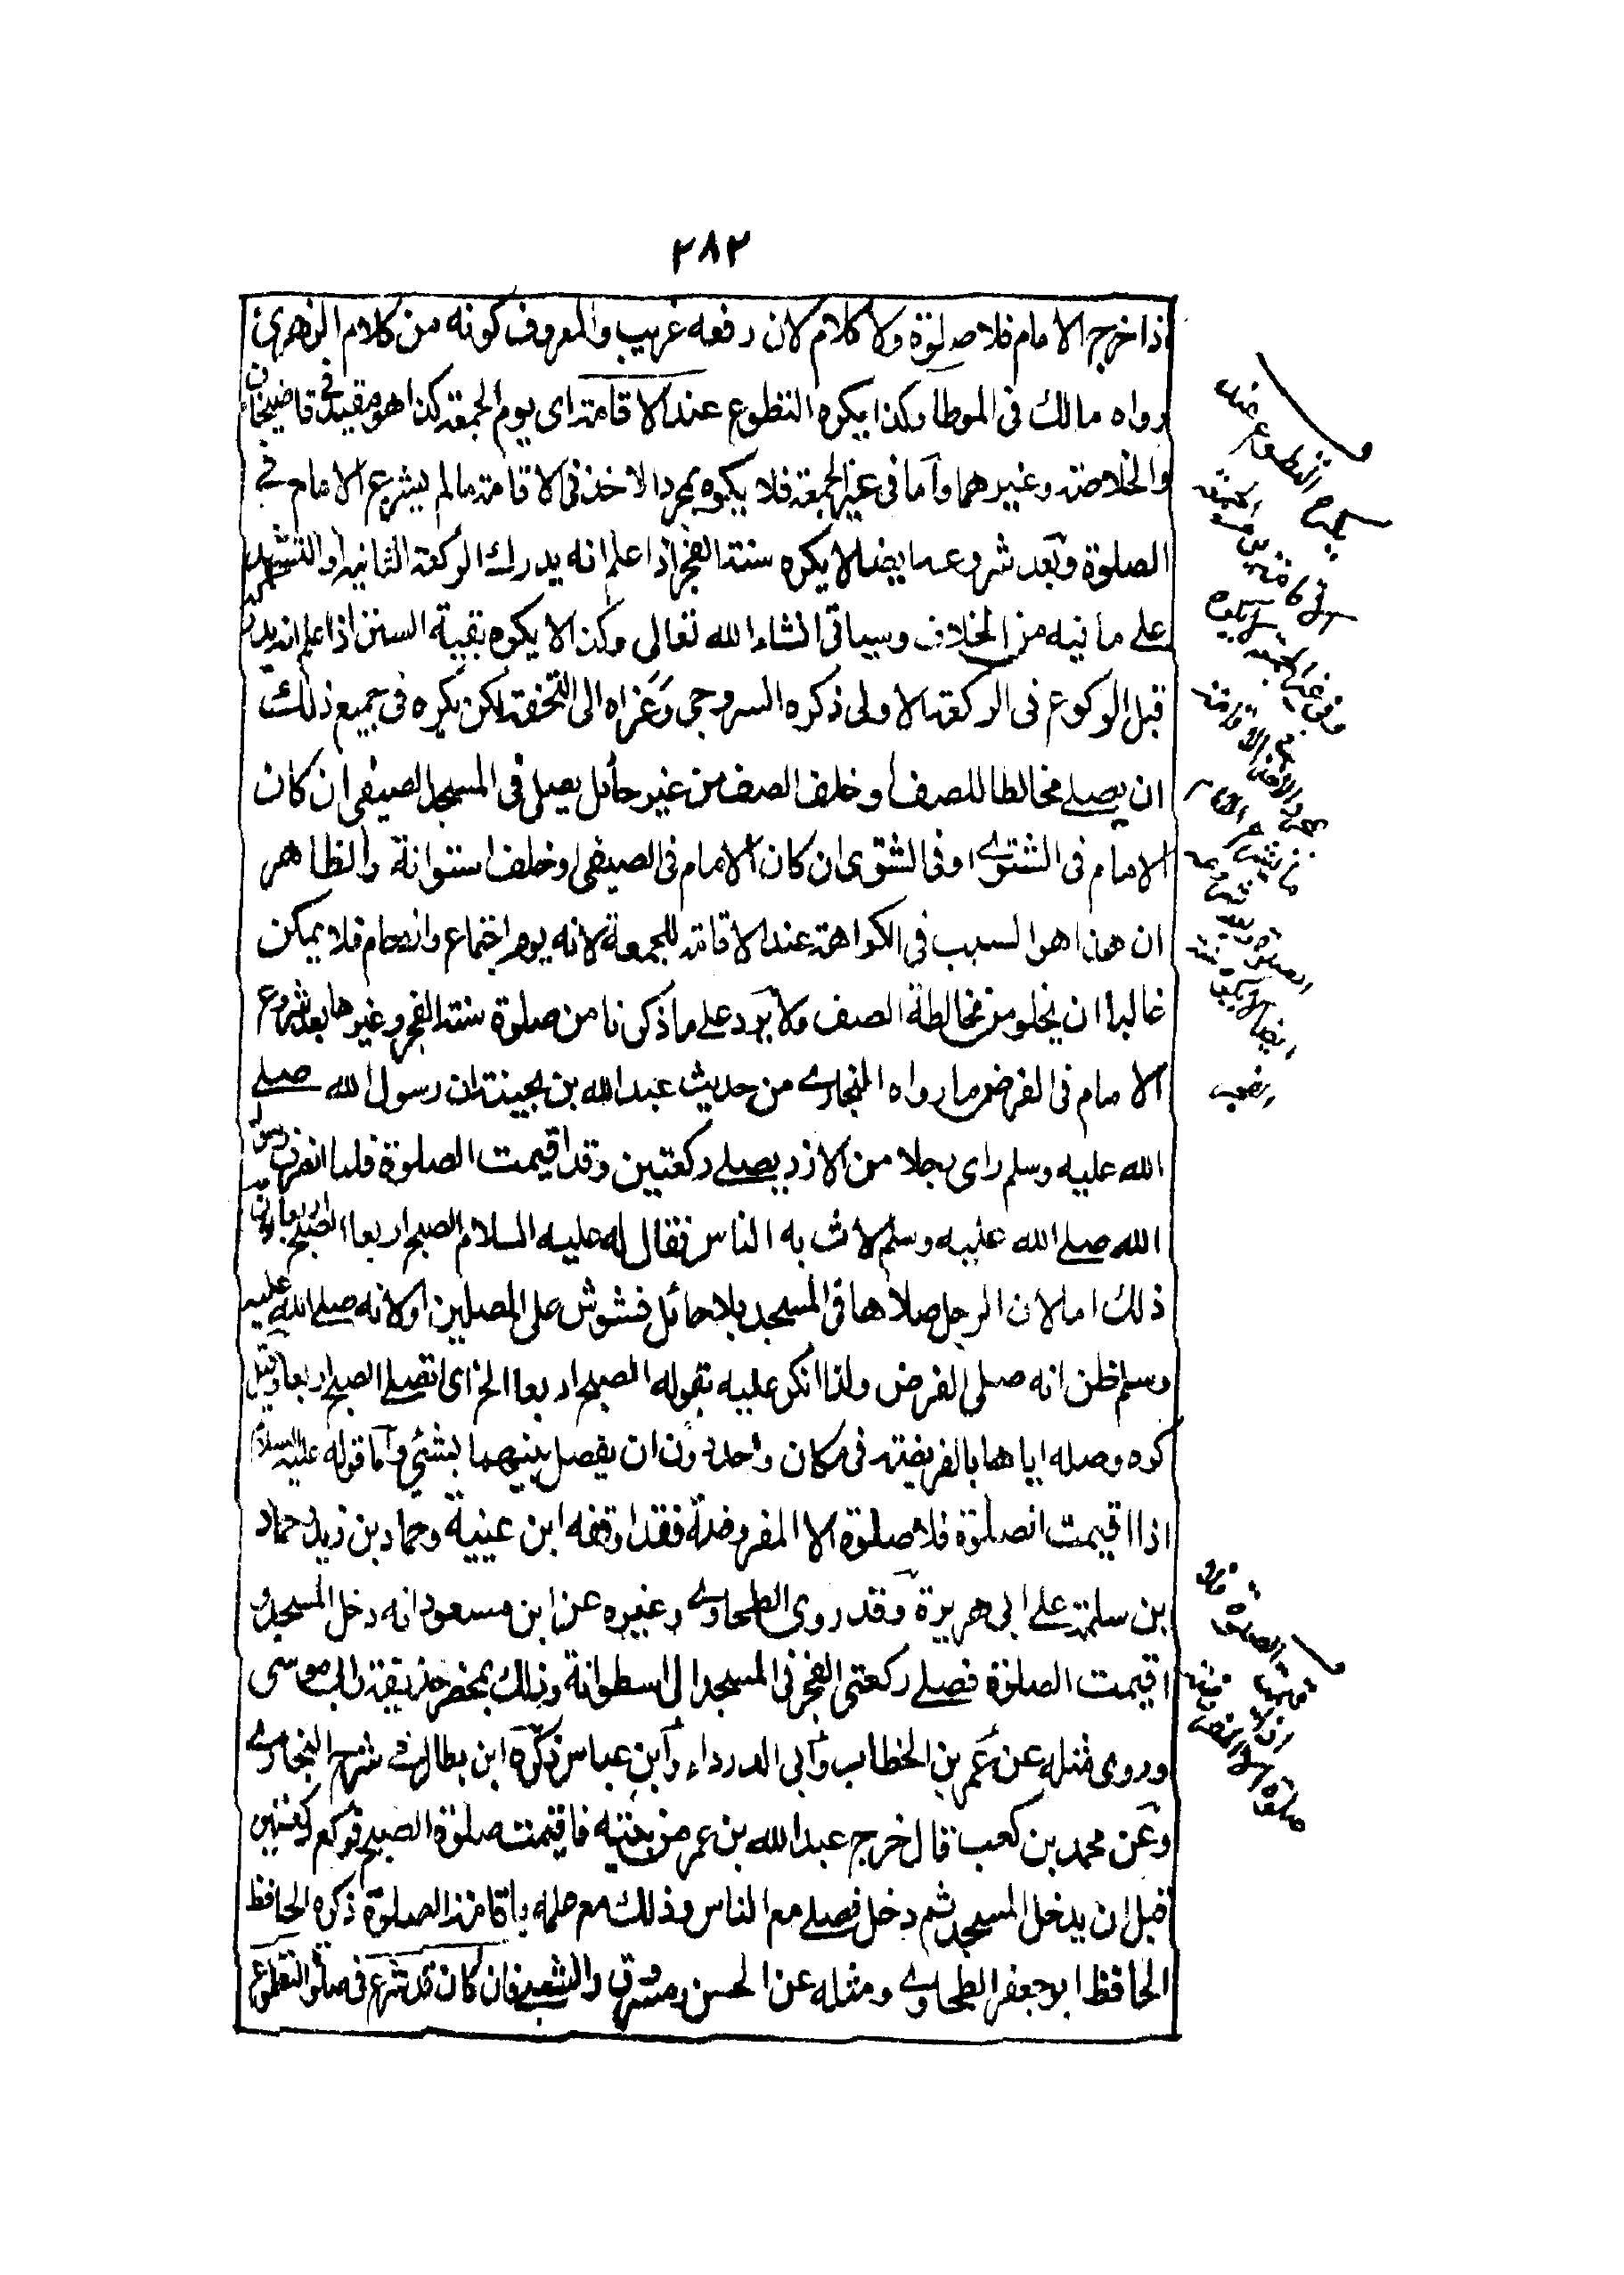 ٢٨٢
اذا خرج الامام فلا صلوة ولا كلام لان رفعه غريب والمعروف كونه من كلام الزهرى
رواه مالك فى الموطا وكذا يكره التطوع عند الاقامة اى يوم الجمعة كذا هو مقيد فى قاضيخان
والخلاصة وغيرهما وآما فى غير الجمعة فلا يكره بمجرد الاخذ فى الاقامة مالم يشرع الامام فى
الصلوة وبعد شروعه ايضا لا يكره سنة الفجر اذا علم انه يدرك الركعة الثانية او التشهد
على ما فيه من الخلاف وسياتى انشاء الله تعالى وكذا لا يكره بقية السنن اذا علم انه يدركه
قبل الركوع فى الركعة الاولى ذكره السروجى وعزاه الى التحفة لكن يكره فى جميع ذلك
ان يصلے مخالطا للصف او خلف الصف من غير حائل يصلى فى المسجد الصيفى ان كان
الامام فى الشتوے او فى الشتوى ان كان الامام فى الصيفى او خلف استوانة والظاهر
ان هذا هو السبب فى الكراهة عند الاقامة للجمعة لانه يوم اجتماع وازدحام فلا يمكن
غالبا ان يخلو من مخالطة الصف ولا يرد على ما ذكرنا من صلوة سنة الفجر وغيرها بعد شروع
الامام فى الفرض ما رواه البخارے من حديث عبد الله بن بحينة ان رسول الله صلے
الله عليه وسلم راى رجلا من الازد يصلے ركعتين وقد اقيمت الصلوة فلما انصرف رسول
الله صلے الله عليه وسلم لاث به الناس فقال له عليه السلام الصبح اربعا الصبح اربعا لان
ذلك اما لان الرجل صلاها فى المسجد بلا حائل فشوش على المصلين او لانه صلے الله عليه
وسلم ظن انه صلى الفرض ولذا انكر عليه بقوله الصبح اربعا الخ اى اتصلے الصبح اربعا وقيل
كره وصله اياها بالفريضة فى مكان واحد دون ان يفصل بينهما بشئ وآما قوله عليه السلام
اذا اقيمت الصلوة فلا صلوة الا المفروضة فقد اوقفه ابن عيينة وحماد بن زيد وحماد
بن سلمة على ابى هريرة وقد روى الطحاوے وغيره عن ابن مسعود انه دخل المسجد و
اقيمت الصلوة فصلے ركعتى الفجر فى المسجد الى اسطوانة وذلك بمحضر حذيفة وابى موسى
وروى مثله عن عمر بن الخطاب وآبى الدرداء وآبن عباس ذكره ابن بطال فے شرح البخارے
وعن محمد بن كعب قال خرج عبد الله بن عمر من بيته فاقيمت صلوة الصبح فركع ركعتين
قبل ان يدخل المسجد ثم دخل فصلے مع الناس وذلك مع علمه باقامة الصلوة ذكره الحافظ
الحافظ ابو جعفر الطحاوے ومثله عن الحسن ومسروق والشعبے فان كان قد شرع فى صلوة التطوع